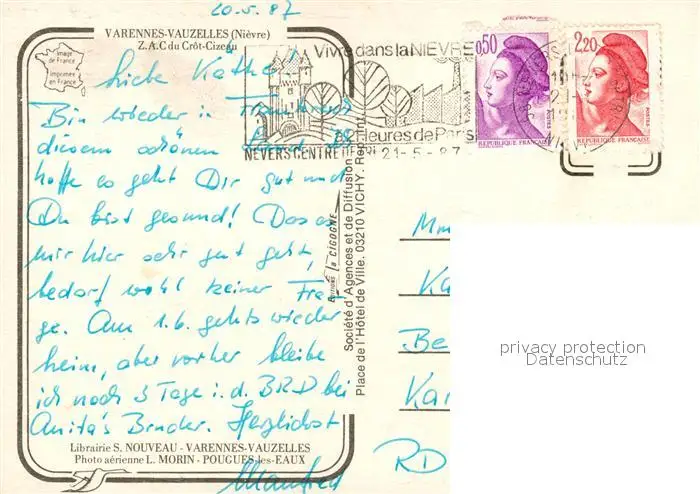 20.5.87
VARENNES-VAUZELLES (Nièvre)
Z.A.C du Crôt-Cizeau
Image de France
Imprimée en France
Liebe Käthe!
Bin wieder in Frankreich
diesem schönen Land. Ich
hoffe es geht Dir gut und
Du bist gesund! Das es
mir hier sehr gut geht,
bedarf wohl keiner Fra-
ge. Am 1.6. gehts wieder
heim, aber vorher bleibe
ich noch 3 Tage i.d. BRD bei
Anita's Bruder. Herzlichst
Manfred
Librairie S. NOUVEAU - VARENNES-VAUZELLES
Photo aérienne L. MORIN - POUGUES-les-EAUX
Vivre dans la NIEVRE
Heures de Paris
NEVERS CENTRE
21-5-87
0,50
POSTES
REPUBLIQUE FRANÇAISE
2,20
POSTES
REPUBLIQUE FRANÇAISE
EDITIONS la CIGOGNE
Société d'Agences et de Diffusion
Place de l'Hôtel de Ville. 03210 VICHY.
Mm
Ka
Be
Ka
RD
privacy protection
Datenschutz